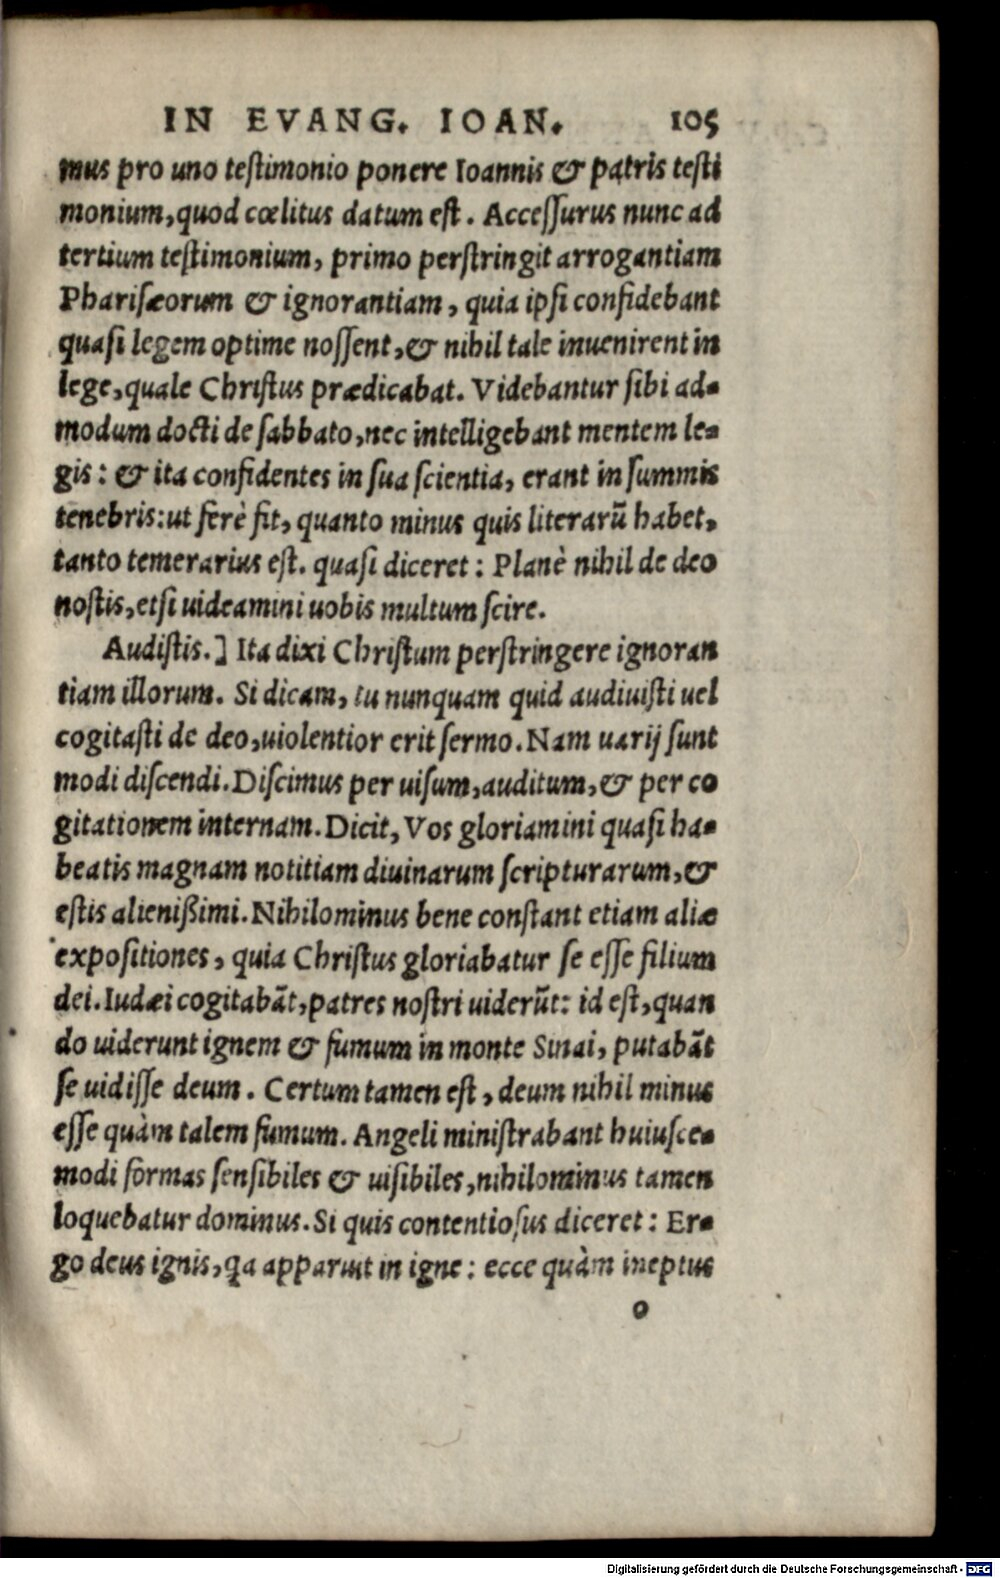 IN EVANG. IOAN. 105
mus pro uno teſtimonio ponere Ioannis & patris teſti
monium, quod cœlitus datum eſt. Acceſſurus nunc ad
tertium teſtimonium, primo perſtringit arrogantiam
Phariſæorum & ignorantiam, quia ipſi confidebant
quaſi legem optime noſſent, & nihil tale inuenirent in
lege, quale Chriſtus prædicabat. Videbantur ſibi ad-
modum docti de ſabbato, nec intelligebant mentem le-
gis: & ita confidentes in ſua ſcientia, erant in ſummis
tenebris: ut ferè fit, quanto minus quis literarũ habet,
tanto temerarius eſt. quaſi diceret: Planè nihil de deo
noſtis, etſi uideamini uobis multum ſcire.
Audiſtis.] Ita dixi Chriſtum perſtringere ignoran
tiam illorum. Si dicam, tu nunquam quid audiuiſti uel
cogitaſti de deo, uiolentior erit ſermo. Nam uarij ſunt
modi diſcendi. Diſcimus per uiſum, auditum, & per co
gitationem internam. Dicit, Vos gloriamini quaſi ha-
beatis magnam notitiam diuinarum ſcripturarum, &
eſtis alienißimi. Nihilominus bene conſtant etiam aliæ
expoſitiones, quia Chriſtus gloriabatur ſe eſſe filium
dei. Iudæi cogitabãt, patres noſtri uiderũt: id eſt, quan
do uiderunt ignem & fumum in monte Sinai, putabãt
ſe uidiſſe deum. Certum tamen eſt, deum nihil minus
eſſe quàm talem fumum. Angeli miniſtrabant huiuſce-
modi formas ſenſibiles & uiſibiles, nihilominus tamen
loquebatur dominus. Si quis contentioſus diceret: Er-
go deus ignis, qa apparuit in igne: ecce quàm ineptus
o
Digitalisierung gefördert durch die Deutsche Forschungsgemeinschaft - DFG